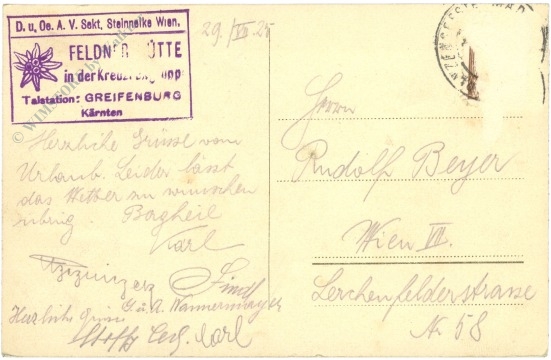 D. u. Oe. A. V. Sekt. Steinnelke Wien.
FELDNER HÜTTE
in der Kreuzeckgruppe
Talstation: GREIFENBURG
Kärnten
29./VII.25
Herzliche Grüsse vom
Urlaub. Leider lässt
das Wetter zu wünschen
übrig. Bergheil
Karl
Herzliche Grüsse
Karl
Herrn
Rudolf Beyer
Wien VII.
Lerchenfelderstrasse
Nr 58